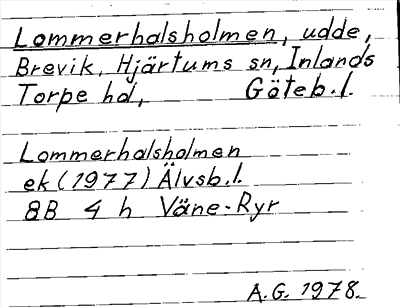 Lommerhalsholmen, udde,
Brevik, Hjärtums sn, Inlands
Torpe hd, Göteb.l.
Lommerhalsholmen
ek (1977) Älvsb.l.
8B 4 h Väne-Ryr
A.G. 1978.